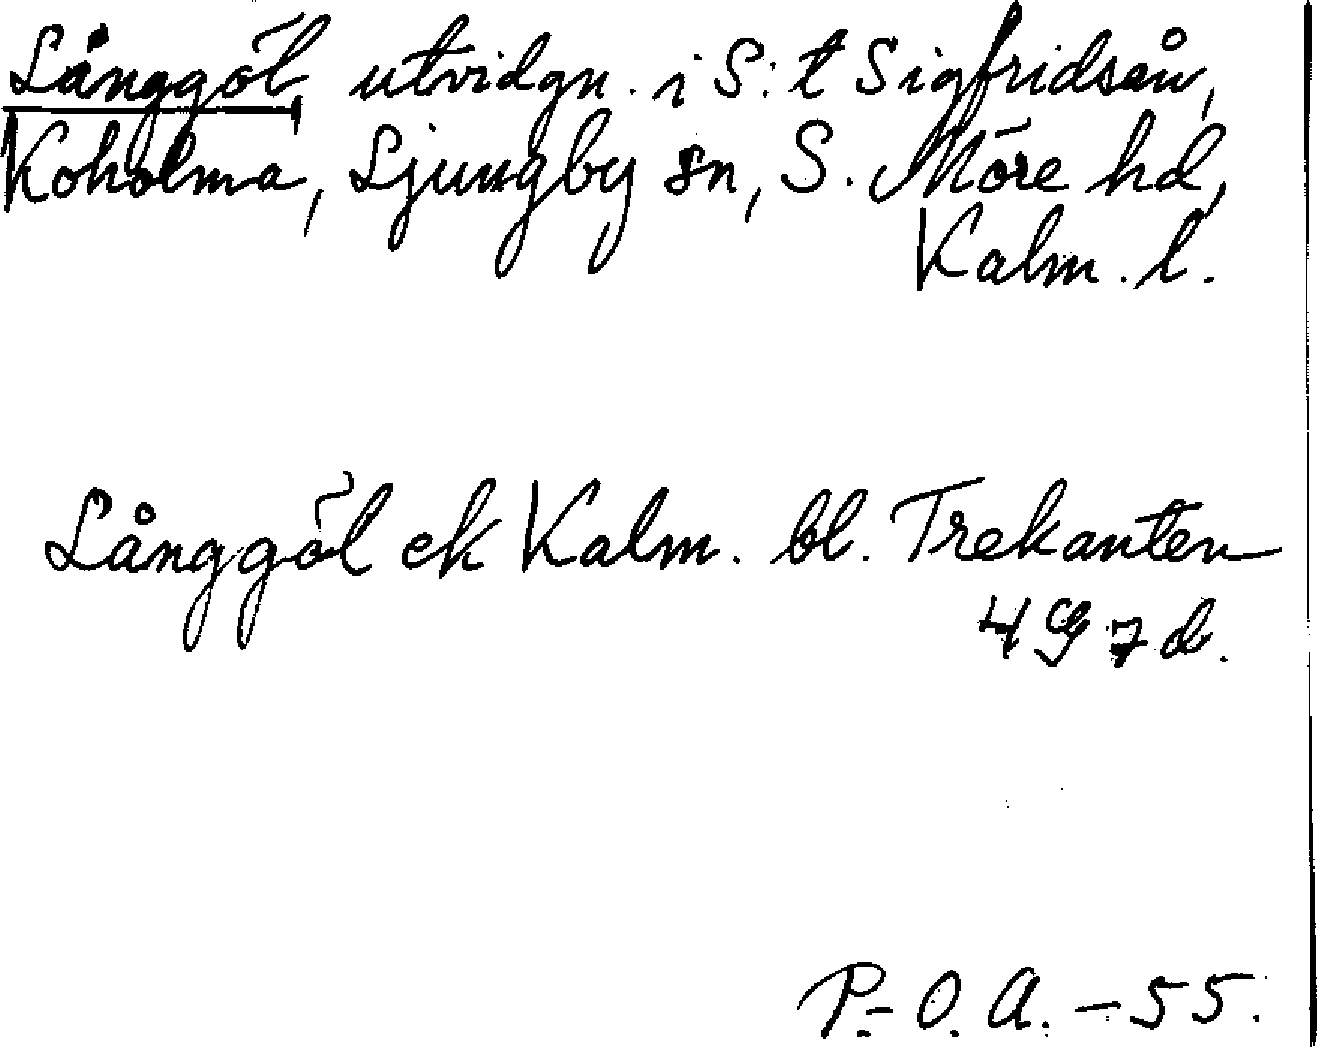 Långgöl, utvidgn. i S:t Sigfridsån,
Koholma, Ljungby sn, S. Möre hd,
Kalm. l.
Långgöl ek Kalm. bl. Trekanten
4 G 7 d.
P.-O. A. – 55.